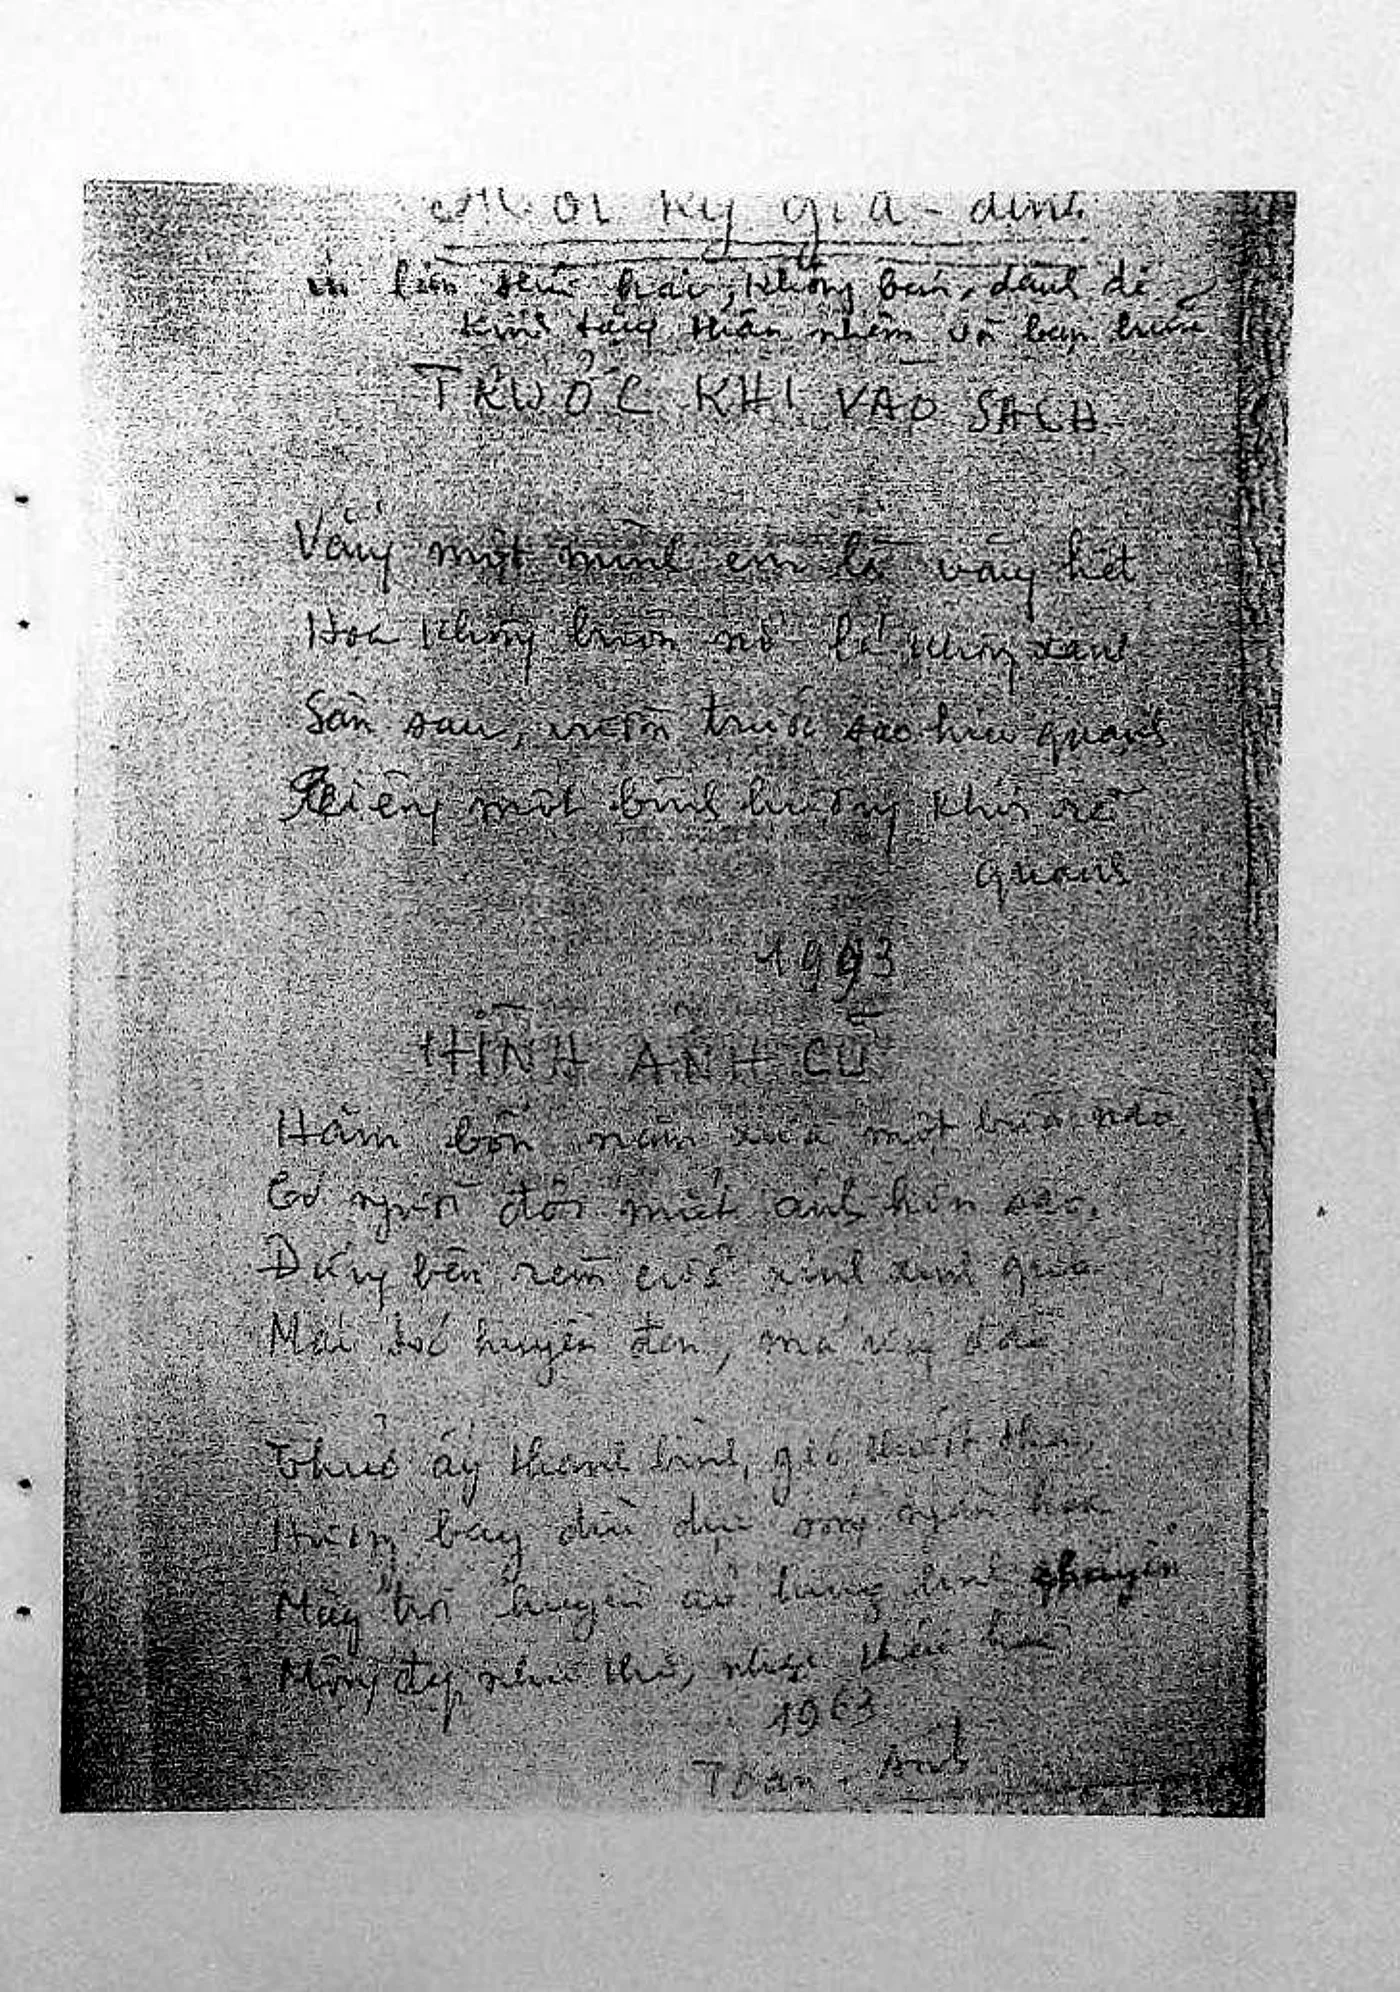 Hồi ký gia-đình
in lần thứ hai, không bán, dành để
kính tặng thân nhân và bạn hữu
TRƯỚC KHI VÀO SÁCH
Vắng một mình em là vắng hết
Hoa không buồn nở lá không xanh
Sân sau, vườn trước sao hiu quạnh
Riêng một bình hương khói rẽ
quanh
1993
HÌNH ẢNH CŨ
Hăm bốn năm xưa một buổi nào,
Có người đôi mắt ánh hơn sao,
Đứng bên rèm cửa xinh xinh quá
Mái tóc huyền đen, má
Thuở ấy thanh bình, gió thướt tha,
Hương bay dìu dịu ngàn hoa
Mây trời huyền ảo
Mộng đẹp như thơ, nhạc thái hoà
1963
Toan - Ánh